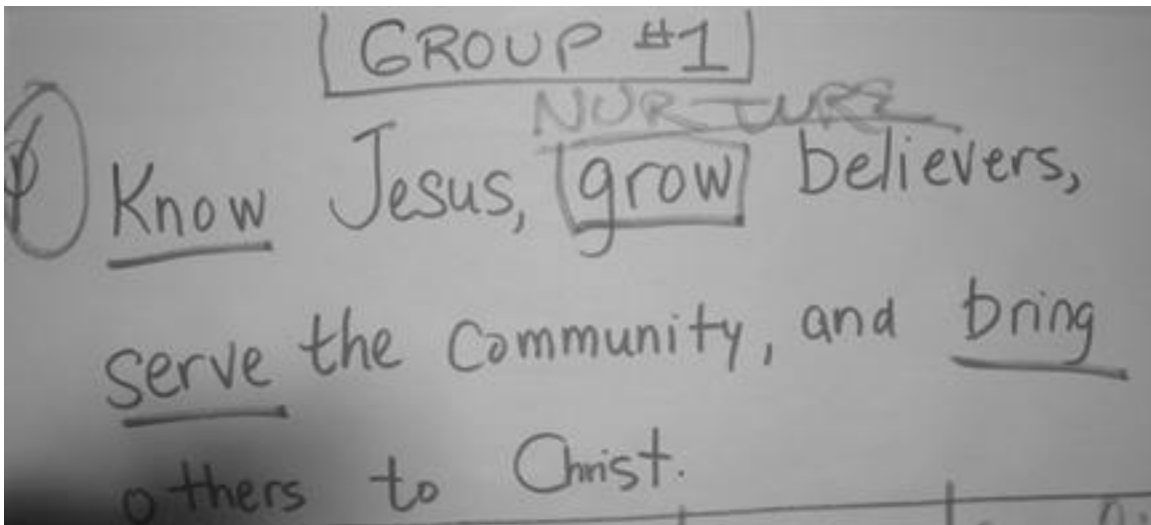 GROUP #1
NURTURE
Know Jesus, grow believers,
serve the community, and bring
others to Christ.